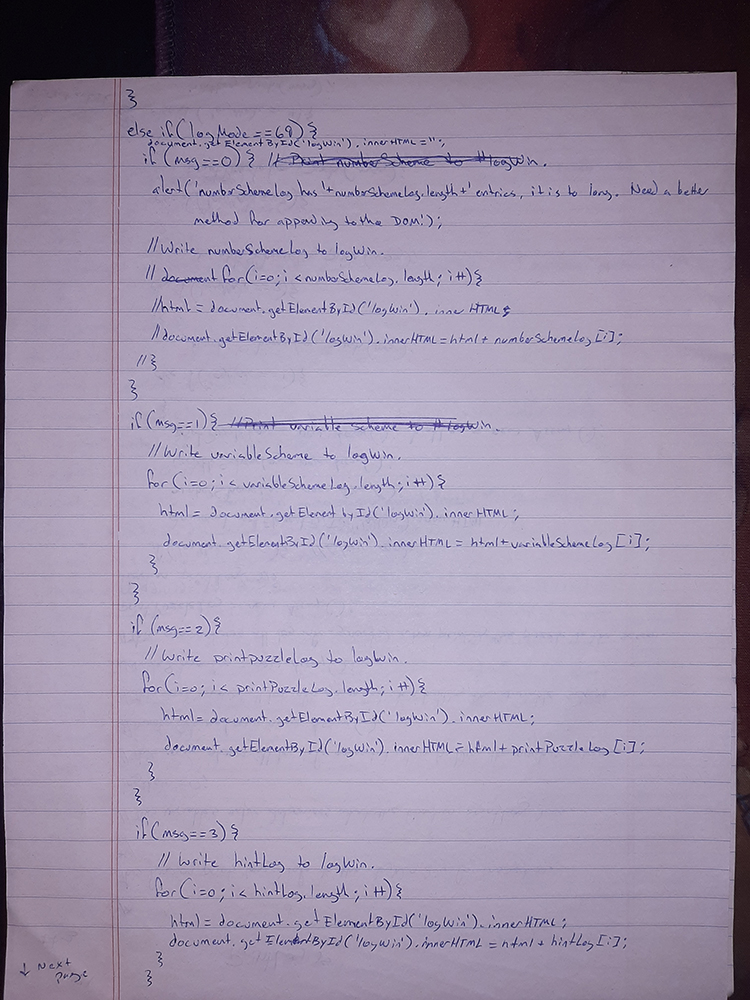 }
else if(logMode==69){
document.getElementById('logWin').innerHTML='';
if(msg==0){ // Print numberScheme to #logWin.
alert('numberSchemeLog has '+numberSchemeLog.length+' entries, it is to long. Need a better
method for appending to the DOM.');
//Write numberSchemeLog to logWin.
// document for(i=0;i<numberSchemeLog.length;i++){
//html = document.getElementById('logWin').innerHTML;
//document.getElementById('logWin').innerHTML=html+numberSchemeLog[i];
//}
}
if(msg==1){ //Print variable Scheme to #logWin.
//Write variableScheme to logWin.
for(i=0;i<variableSchemeLog.length;i++){
html = document.getElementbyId('logWin').innerHTML;
document.getElementById('logWin').innerHTML = html+variableSchemeLog[i];
}
}
if(msg==2){
// Write printpuzzleLog to logwin.
for(i=0;i<printPuzzleLog.length;i++){
html=document.getElementById('logWin').innerHTML;
document.getElementById('logWin').innerHTML=html+printPuzzleLog[i];
}
}
if(msg==3){
// Write hintLog to logWin.
for(i=0;i<hintLog.length;i++){
html=document.getElementById('logWin').innerHTML;
document.getElementById('logWin').innerHTML=html+hintLog[i];
}
}
↓ Next
page